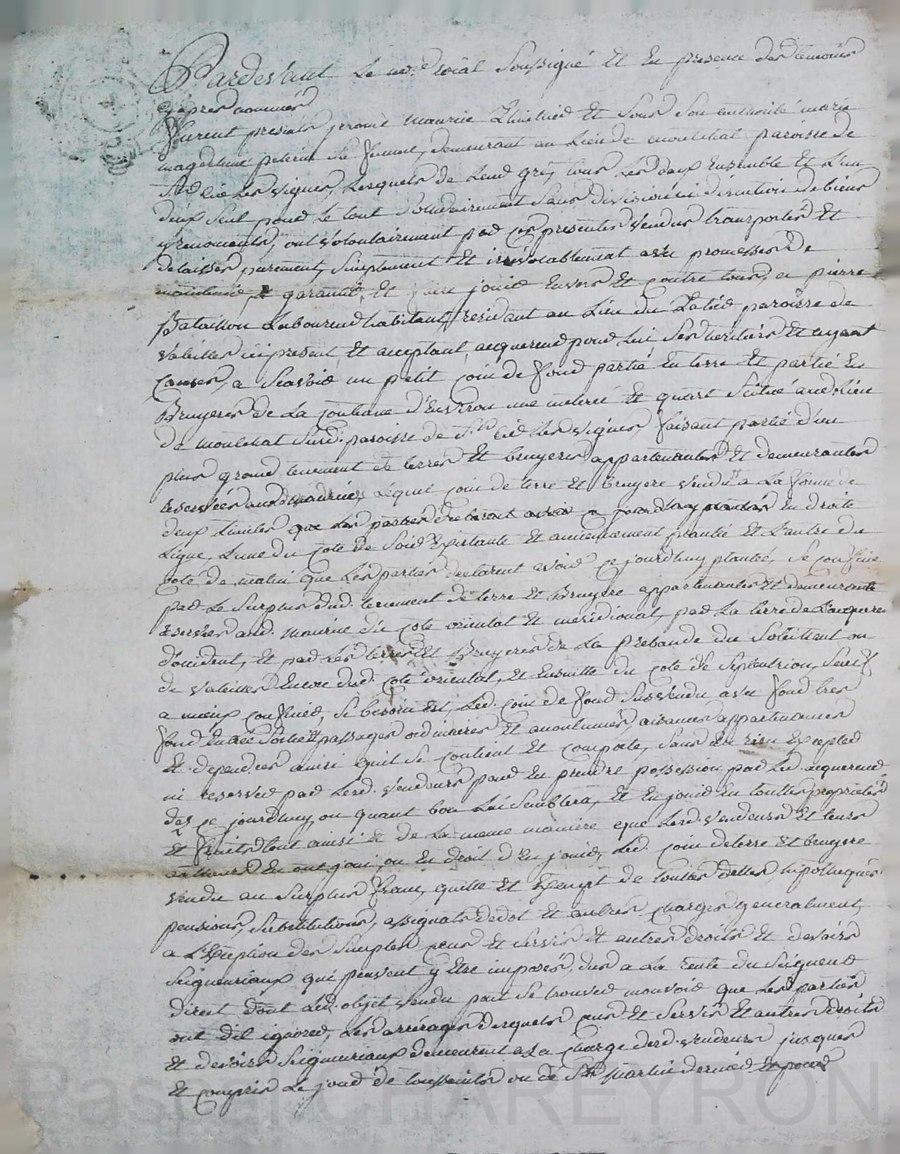 Pardevant Le no.re roial Soussigné Et En presence des temoins
apres nommés
furent presents jerome maurice Et Sous Son authorité marie
magdelaine sa femme, demeurant au Lieu de montchat paroisse de
Les vignes, Lesquels de Leur gré, tous Les deux Ensemble et L'un
deux seul pour Le tout solidairement sans division ni de biens
ont volontairement par ces presentes vendus transportés Et
delaisses purement, simplement Et irrevocablement avec promesses de
maintenir, garantir, Et faire jouir Envers Et contre tous, a pierre
Bataillon Laboureur habitant residant au Lieu du paroisse de
ici present Et acceptant, acquereur pour Lui Ses heritiers Et ayant
causes, a Scavoir un petit coin de fond partié En terre Et partié En
Bruyeres de La d'Environ une Et quart Situé audit Lieu
de montchat Susd. paroisse de Les vignes, faisant partié d'un
plus grand tenement de terres Et bruyeres appartenantes Et demeurantes
reservées aud. maurice, Lequel coin de terre Et bruyere vendu a La forme de
deux Limites que Les parties En droite
Ligne, L'une du cote de Soir Existante Et anciennement plantée Et L'autre du
coté de matin que Les parties declarent avoir cejourdhuy plantée, Se confine
par Le Surplus dud. tenement de terre Et Bruyere appartenantes Et demeurantes
reservées aud. maurice du coté oriental Et meridional, par La terre de L'acquereur
d'occident, Et par Les terres Et Bruyeres de La Prebande du
de Encore dud. coté oriental, Et Ensuitte du coté de Septentrion, Sauf
a mieux confiner, Si besoin Est, Led. coin de fond Susvendu avec fond tres
fond Entrée Sortie Et passages ordinaires Et accoutumés aisances appartenances
Et dependces ainsi qu'il Se contient Et comporte, Sans En rien Excepter
ni reserver par Lesd. vendeurs pour En prendre possession par Led. acquereur
des ce jourdhuy, ou quant bon Lui Semblera, Et En jouir En touttes proprietés
Et fruits, tout ainsi Et de La meme maniere que Lesd. vendeurs Et Leurs
auteurs En ont joui, ou Eu droit d'En jouir, Led. coin de terre Et bruyere
vendu au Surplus franc, quitte Et Exempt de toutes dettes, hipotheques
pensions, Substitutions, assignats de dot Et autres charges generalment,
a L'Exeption des Simples cens Et servis Et autres droits Et devoirs
Seigneuriaux qui peuvent y Etre imposés, dus a La rente du Seigneur
direct dont Led. objet vendu peut Se trouver mouvoir que Les parties
ont dit ignorer, Les arrérages desquels cens Et Servis Et autres droits
Et devoirs Seigneuriaux demeurent a La charge desd. vendeurs jusques
Et compris Le jour de toussaints ou de St. Martin dernier Et pour
Pascal CHAREYRON